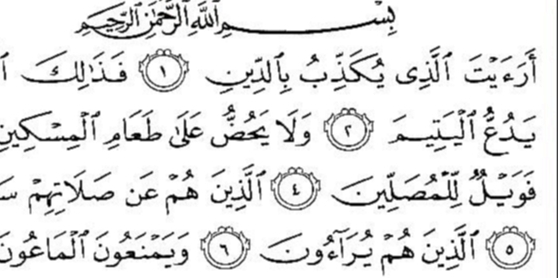 بِسْمِ ٱللَّهِ ٱلرَّحْمَٰنِ ٱلرَّحِيمِ
أَرَءَيْتَ ٱلَّذِى يُكَذِّبُ بِٱلدِّينِ ١ فَذَٰلِكَ
يَدُعُّ ٱلْيَتِيمَ ٢ وَلَا يَحُضُّ عَلَىٰ طَعَامِ ٱلْمِسْكِينِ
فَوَيْلٌ لِّلْمُصَلِّينَ ٤ ٱلَّذِينَ هُمْ عَن صَلَاتِهِمْ
٥ ٱلَّذِينَ هُمْ يُرَآءُونَ ٦ وَيَمْنَعُونَ ٱلْمَاعُونَ